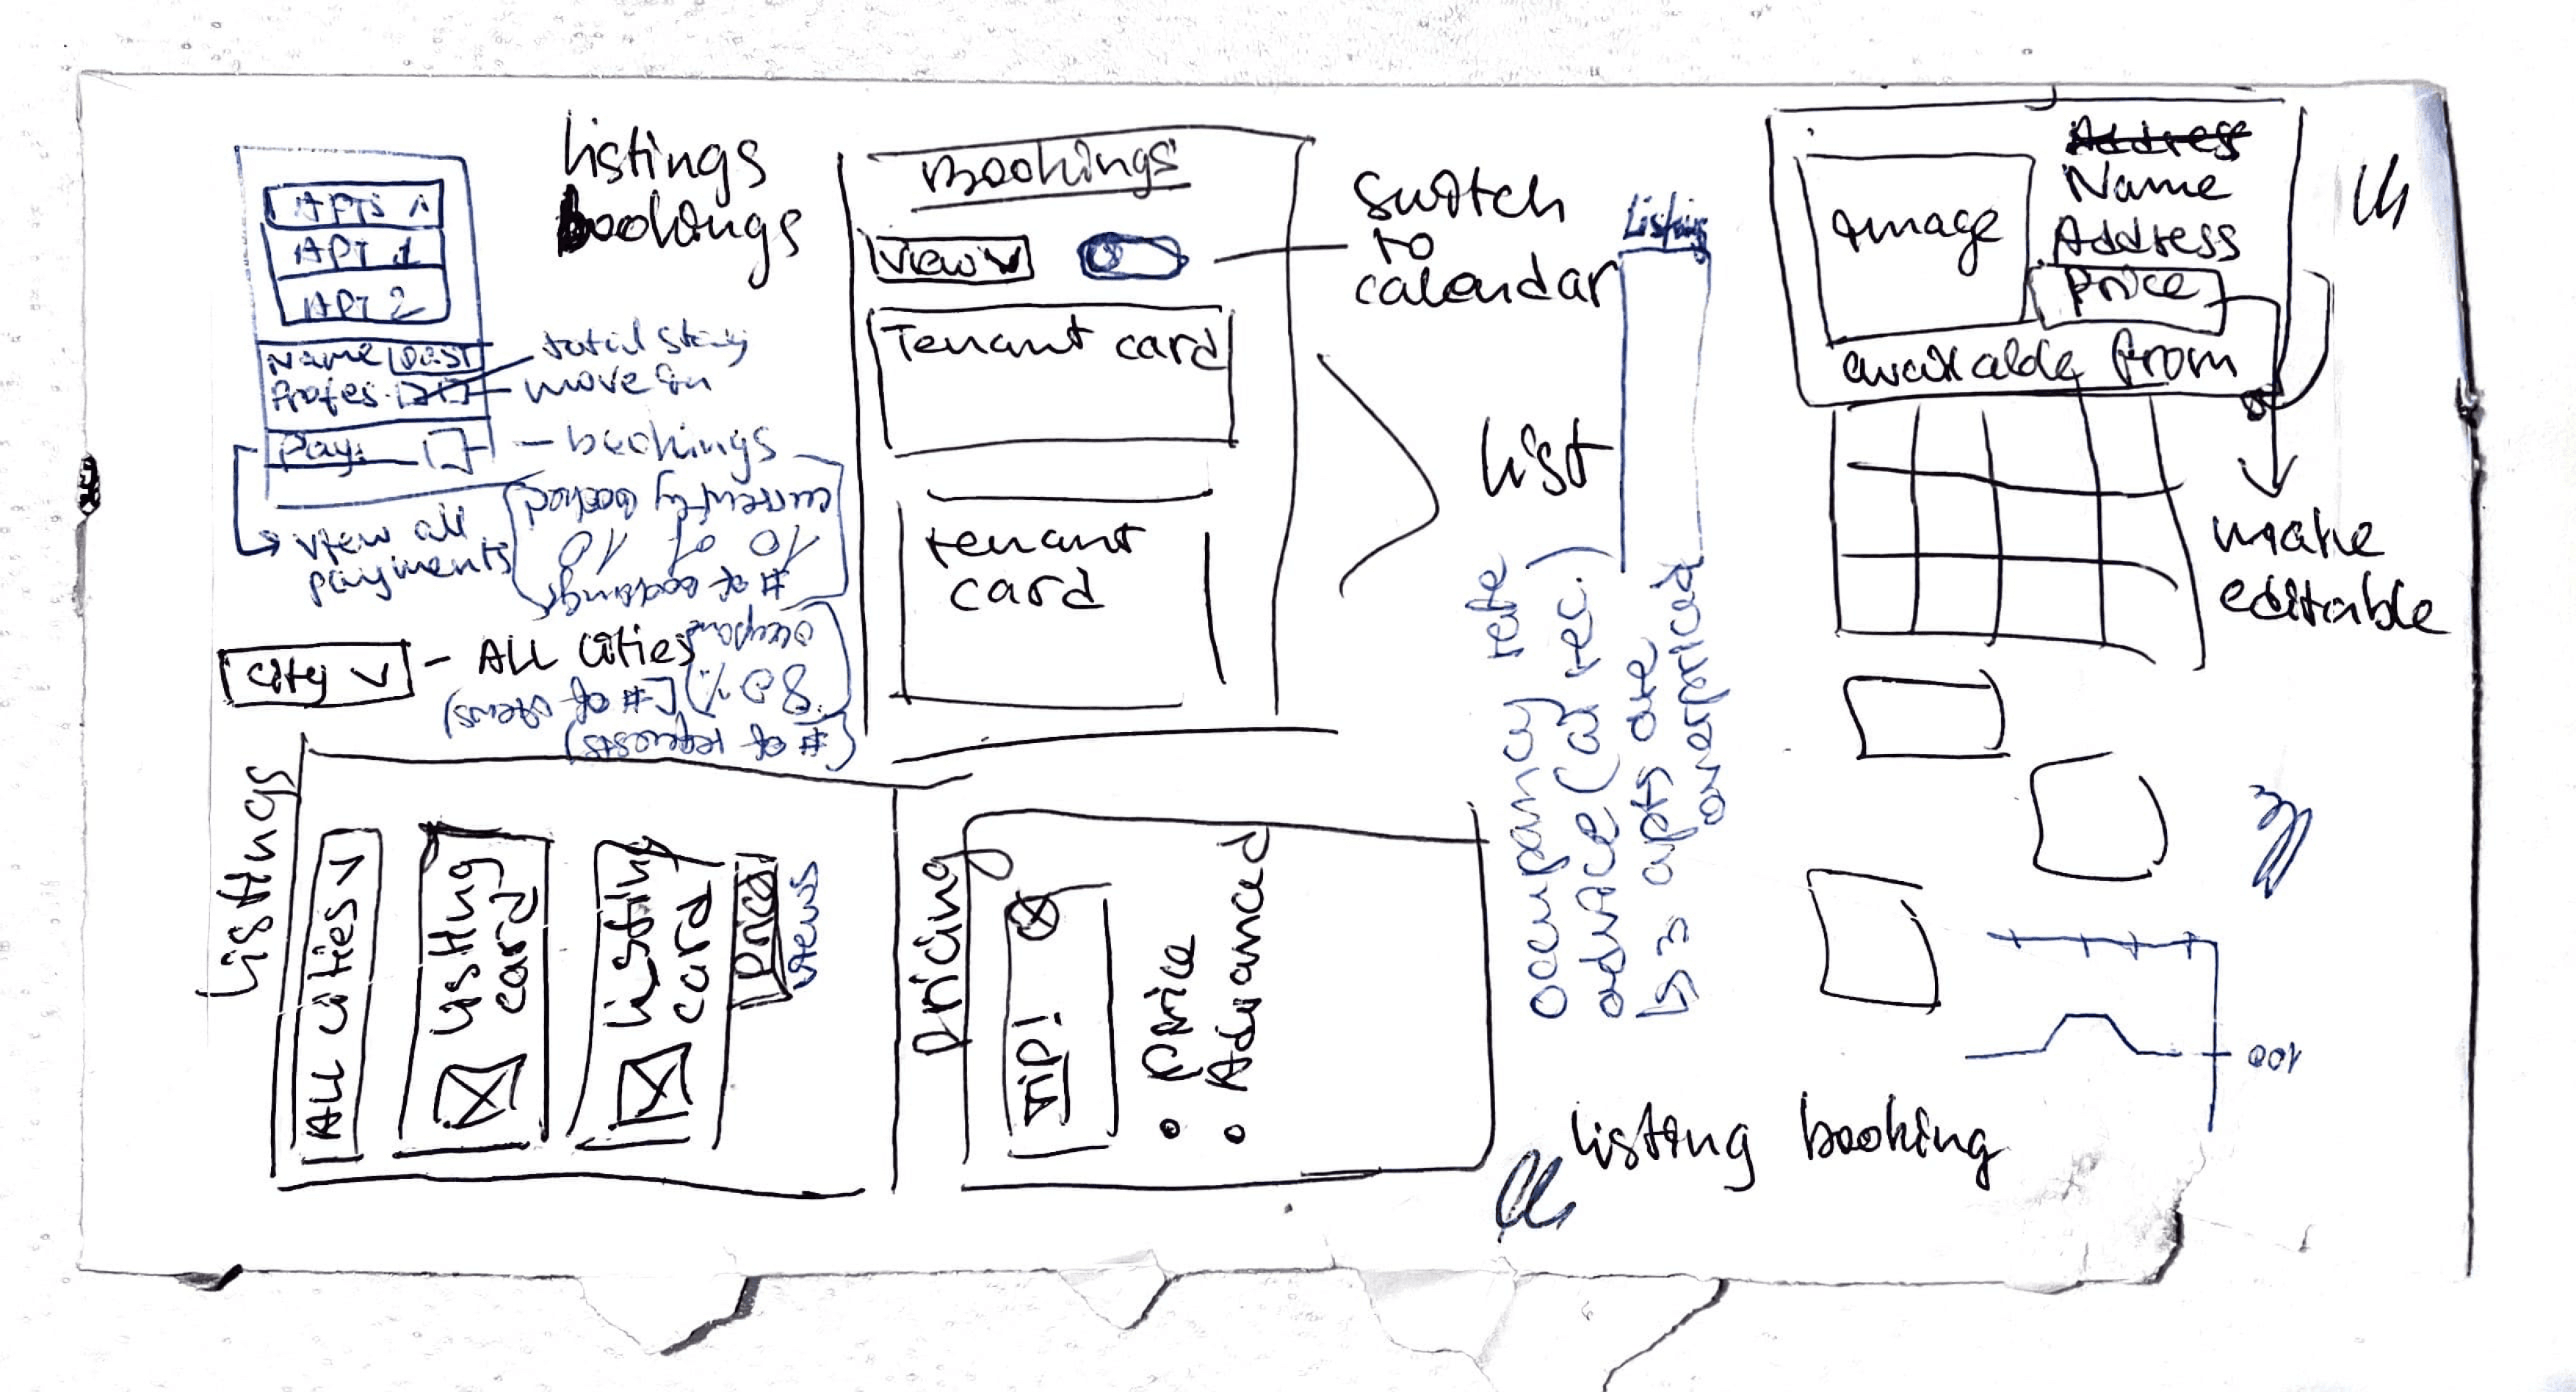 Listings
bookings
APTS
APT 1
APT 2
Name
Profes.
total stay
move in
Pay:
- bookings
view all
payments
currently booked
10 of 10
# of bookings
occupan
80%
[# of views)
(# of requests)
City v - ALL cities
Bookings
View v
Switch
to
calendar
Tenant card
tenant
card
List
Listing
Address
Name
Address
Image
Price
available from
make
editable
Listings
ALL cities v
Listing
card
Listing
card
price
views
Pricing
TIP!
• Price
• Advanced
occupancy rate
advice (as rec.)
apts are
overpriced
100
listing booking